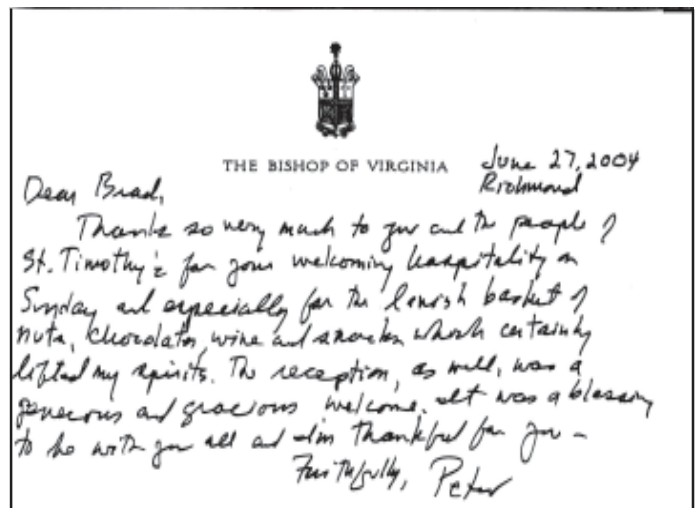 THE BISHOP OF VIRGINIA
June 27, 2004
Richmond
Dear Brad,
Thanks so very much to you and the people of
St. Timothy's for your welcoming hospitality on
Sunday and especially for the lavish basket of
nuts, chocolates, wine and snacks which certainly
lifted my spirits. The reception, as well, was a
generous and gracious welcome. It was a blessing
to be with you all and I'm thankful for you –
Faithfully, Peter